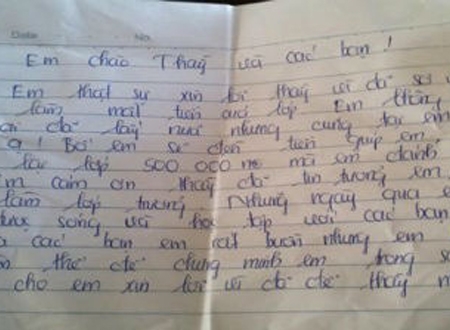 Date No
Em chào Thầy và các bạn !
Em thật sự xin lỗi thầy vì đã sơ
làm mất tiền quỹ lớp. Em
ai đã lấy nó nhưng cũng tại em
ạ ! Bố em sẽ đền tiền giúp em
lại lớp 500 000 mà em đánh
em cảm ơn thầy đã tin tưởng em
làm lớp trưởng Những ngày qua e
được sống và học tập với các bạn
các bạn em rất buồn nhưng em
thế để chứng minh em trong s
cho em xin lỗi vì đã để thầy m